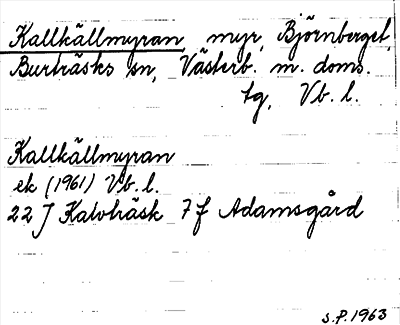 Kallkällmyran, myr, Björnberget,
Burträsks sn, Västerb. m. doms.
tg, Vb. l.
Kallkällmyran
ek (1961) Vb. l.
22 J Kalvträsk 7 f Adamsgård
S.P. 1963